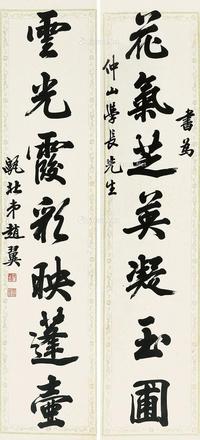 花氣芝英凝玉圃
書為
仲山學長先生
雲光霞彩映蓬壺
甌北弟趙翼